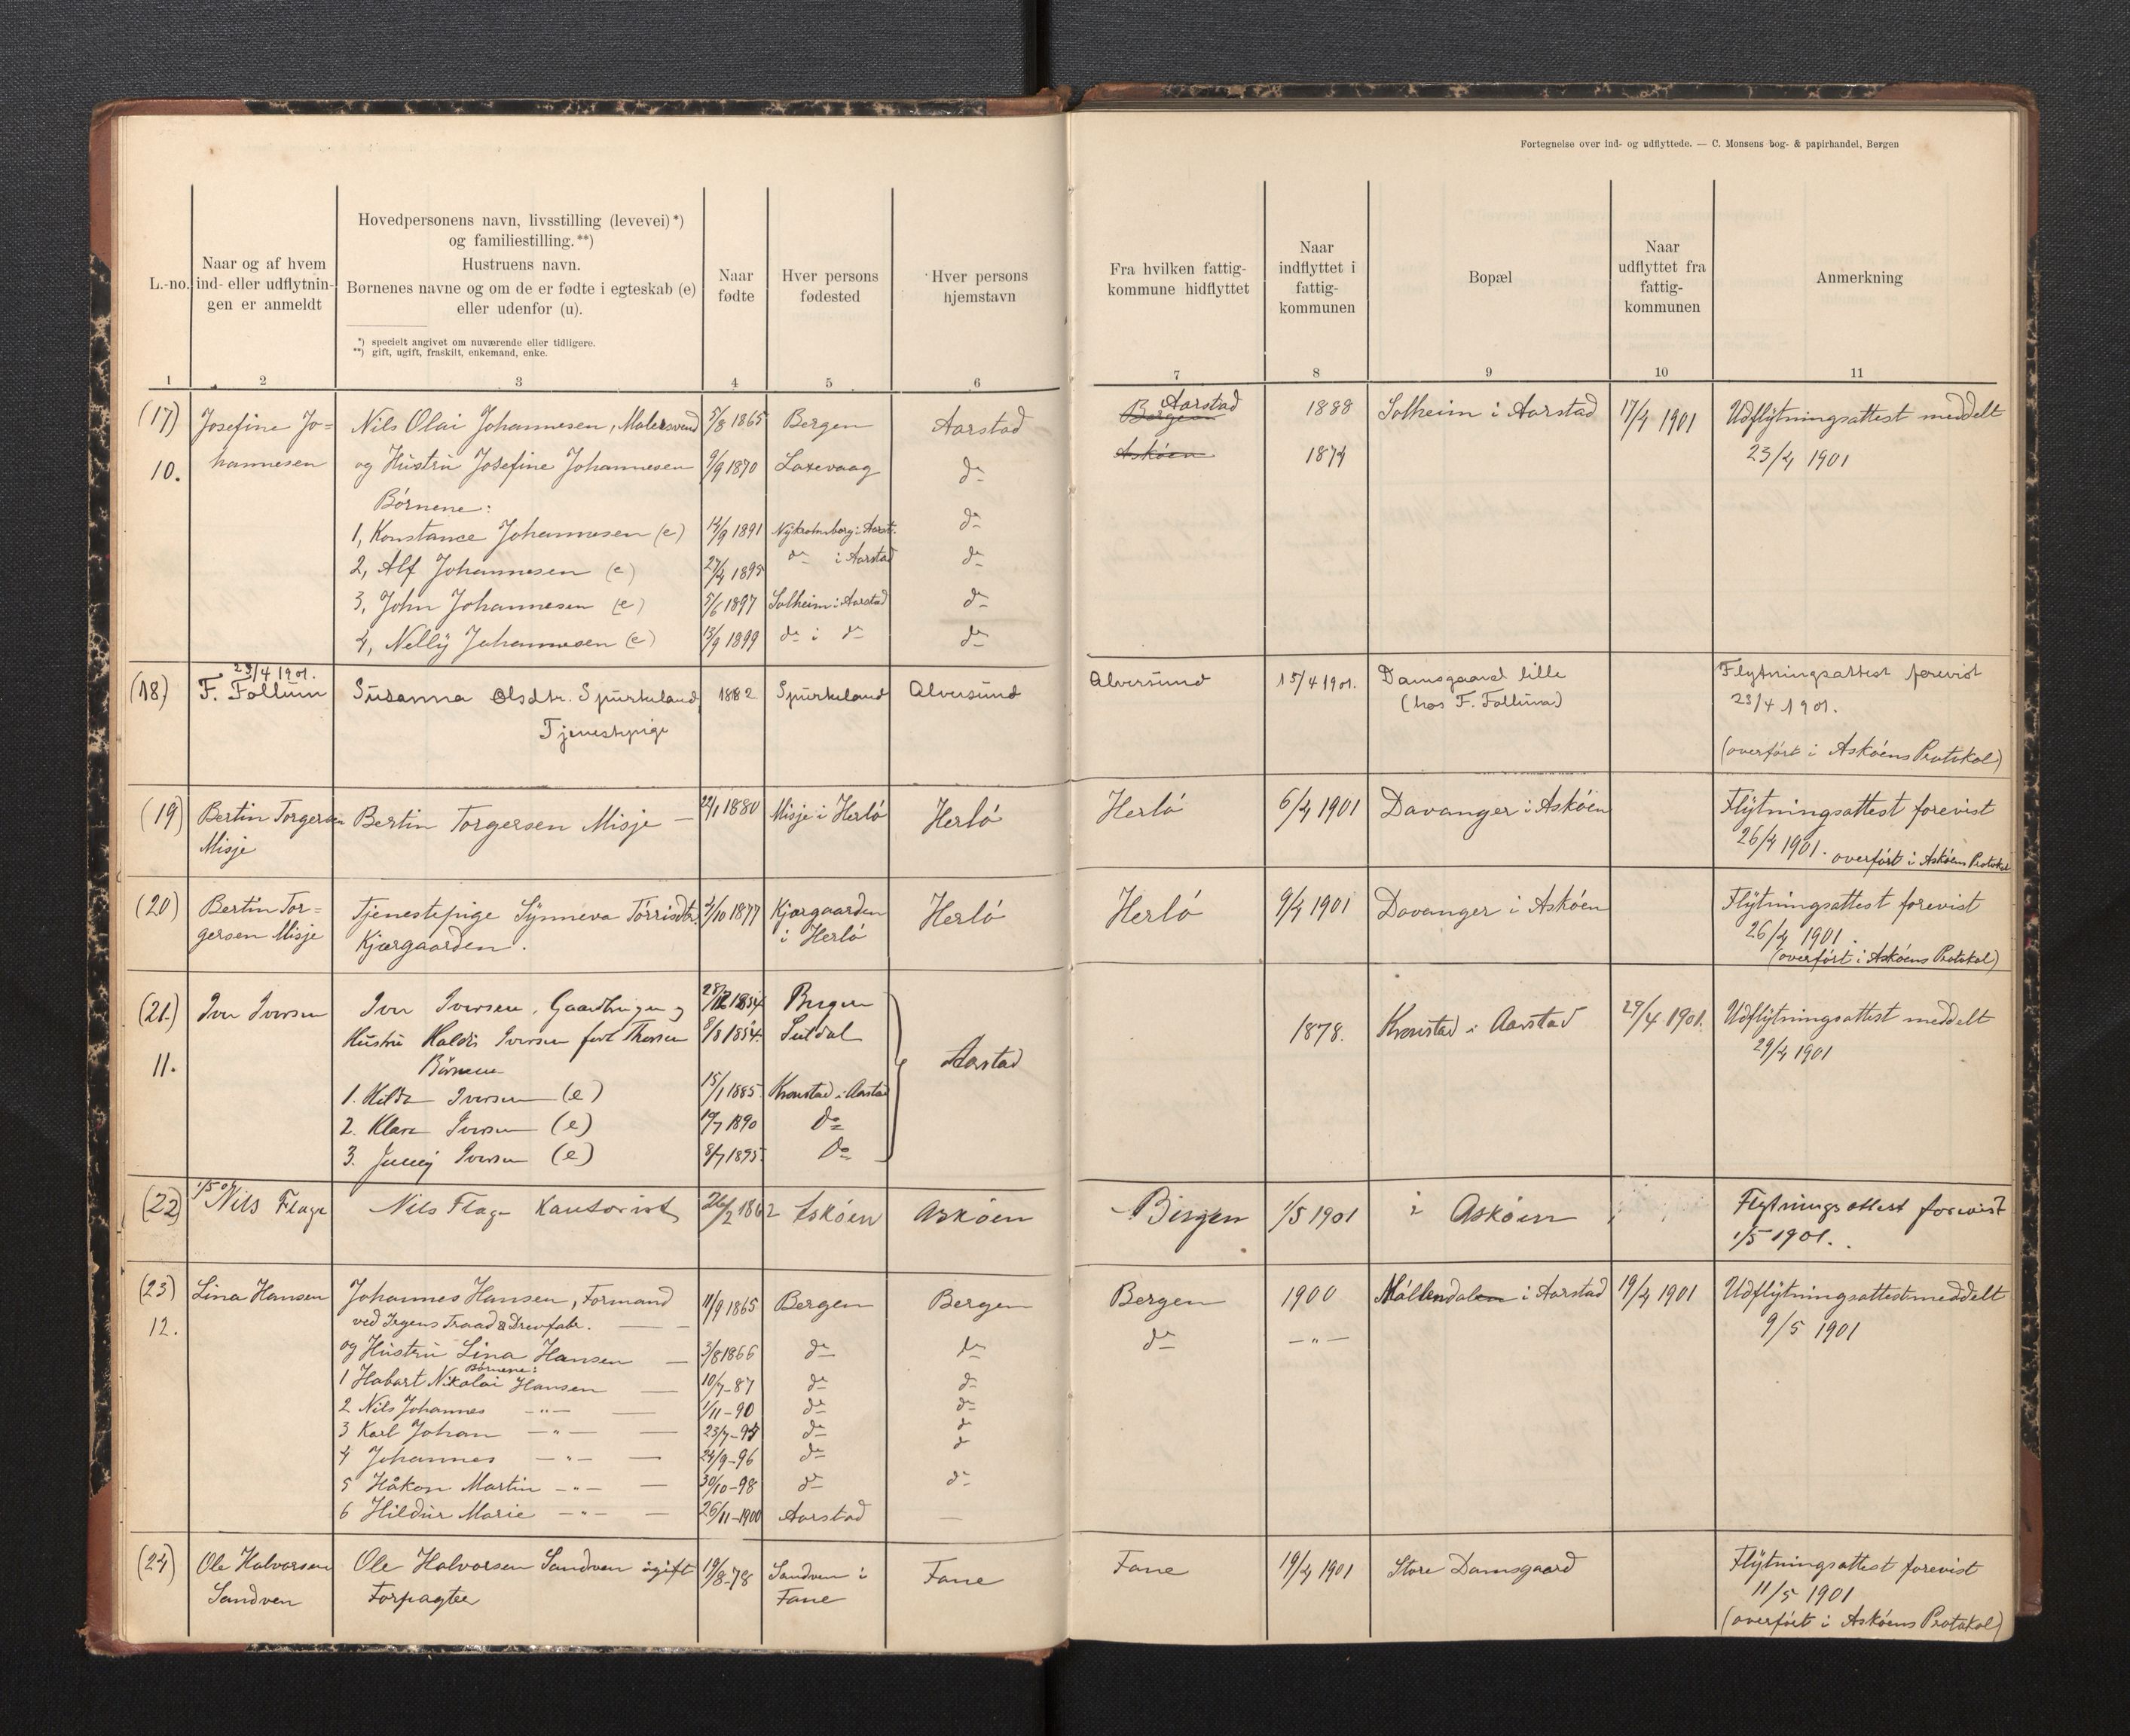 Fortegnelse over ind- og udflyttede. — C. Monsens bog- & papirhandel, Bergen
L.-no.
Naar og af hvem
ind- eller udflytnin-
gen er anmeldt
Hovedpersonens navn, livsstilling (levevei)*)
og familiestilling.**)
Hustruens navn.
Børnenes navne og om de er fødte i egteskab (e)
eller udenfor (u).
*) specielt angivet om nuværende eller tidligere.
**) gift, ugift, fraskilt, enkemand, enke.
Naar
fødte
Hver persons
fødested
Hver persons
hjemstavn
Fra hvilken fattig-
kommune hidflyttet
Naar
indflyttet i
fattig-
kommunen
Bopæl
Naar
udflyttet fra
fattig-
kommunen
Anmerkning
1 2 3 4 5 6 7 8 9 10 11
Aarstad
(17) Josefine Jo= Nils Olai Johannesen, Malersvend 5/8 1865 Bergen Aarstad Bergen 1888 Solheim i Aarstad 17/4 1901 Udflytningsattest meddelt
10. hannesen og Hustru Josefine Johannesen 9/9 1870 Laxevaag do Askøen 1874 23/4 1901
Børnene:
1, Konstance Johannesen (e) 14/9 1891 Nykrohnborg i Aarst. do
2, Alf Johannesen (e) 27/4 1895 do i Aarstad do
3, John Johannesen (e) 5/6 1897 Solheim i Aarstad do
4, Nelly Johannesen (e) 13/9 1899 do i do do
23/4 1901.
(18) F. Follum Susanna Olsdtr. Spurkeland 1882 Spurkeland Alversund Alversund 15/4 1901. Damsgaard lille Flytningsattest forevist
Tjenestepige (hos F. Follum) 23/4 1901.
(overført i Askøens Protokol)
(19) Bertin Torgersen Bertin Torgersen Misje — 22/1 1880 Misje i Herlø Herlø Herlø 6/4 1901 Davanger i Askøen Flytningsattest forevist
Misje 26/4 1901. overført i Askøens Protokol
(20) Bertin Tor= Tjenestepige Synneva Tørrisdtr. 4/10 1877 Kjærgaarden Herlø Herlø 9/4 1901 Davanger i Askøen Flytningsattest forevist
gersen Misje Kjærgaarden. i Herlø 26/4 1901.
(overført i Askøens Protokol)
(21.) Iver Iversen Iver Iversen, Gaardbruger og 1854 Bergen 1878. Kronstad i Aarstad 29/4 1901. Udflytningsattest meddelt
11. Hustru Haldis Iversen født Thorsen 8/8 1854. Suldal Aarstad 29/4 1901
Børnene
1. Hilda Iversen (e) 15/1 1885. Kronstad i Aarstad
2. Klara Iversen (e) 19/7 1890 Do
3. Jenny Iversen (e) 8/7 1895. Do
1/5 01
(22) Nils Flage Nils Flage Kantorist 26/2 1862 Askøen Askøen Bergen 1/5 1901 i Askøen Flytningsattest forevist
1/5 1901.
(23) Lina Hansen Johannes Hansen, Formand 11/9 1865 Bergen Bergen Bergen 1900 Møllendalen i Aarstad 19/4 1901 Udflytningsattest meddelt
12. ved Irgens Traad & Drevfabr. — do —"— 9/5 1901
og Hustru Lina Hansen — 3/8 1866 do do
Børnene:
1 Hobart Nikolai Hansen — 10/7-87 do do
2 Nils Johannes —"— — 1/11-90 do do
3 Karl Johan —"— — 23/7-94 do do
4 Johannes —"— — 24/9-96 do do
5 Håkon Martin —"— — 30/10-98 do do
6 Hildur Marie —"— — 26/11-1900 Aarstad —
(24) Ole Halvorsen Ole Halvorsen Sandven ugift 19/8-78 Sandven i Fane Fane 19/4 1901 Store Damsgaard Flytningsattest forevist
Sandven Forpagter Fane 11/5 1901
(overført i Askøens Protokol)